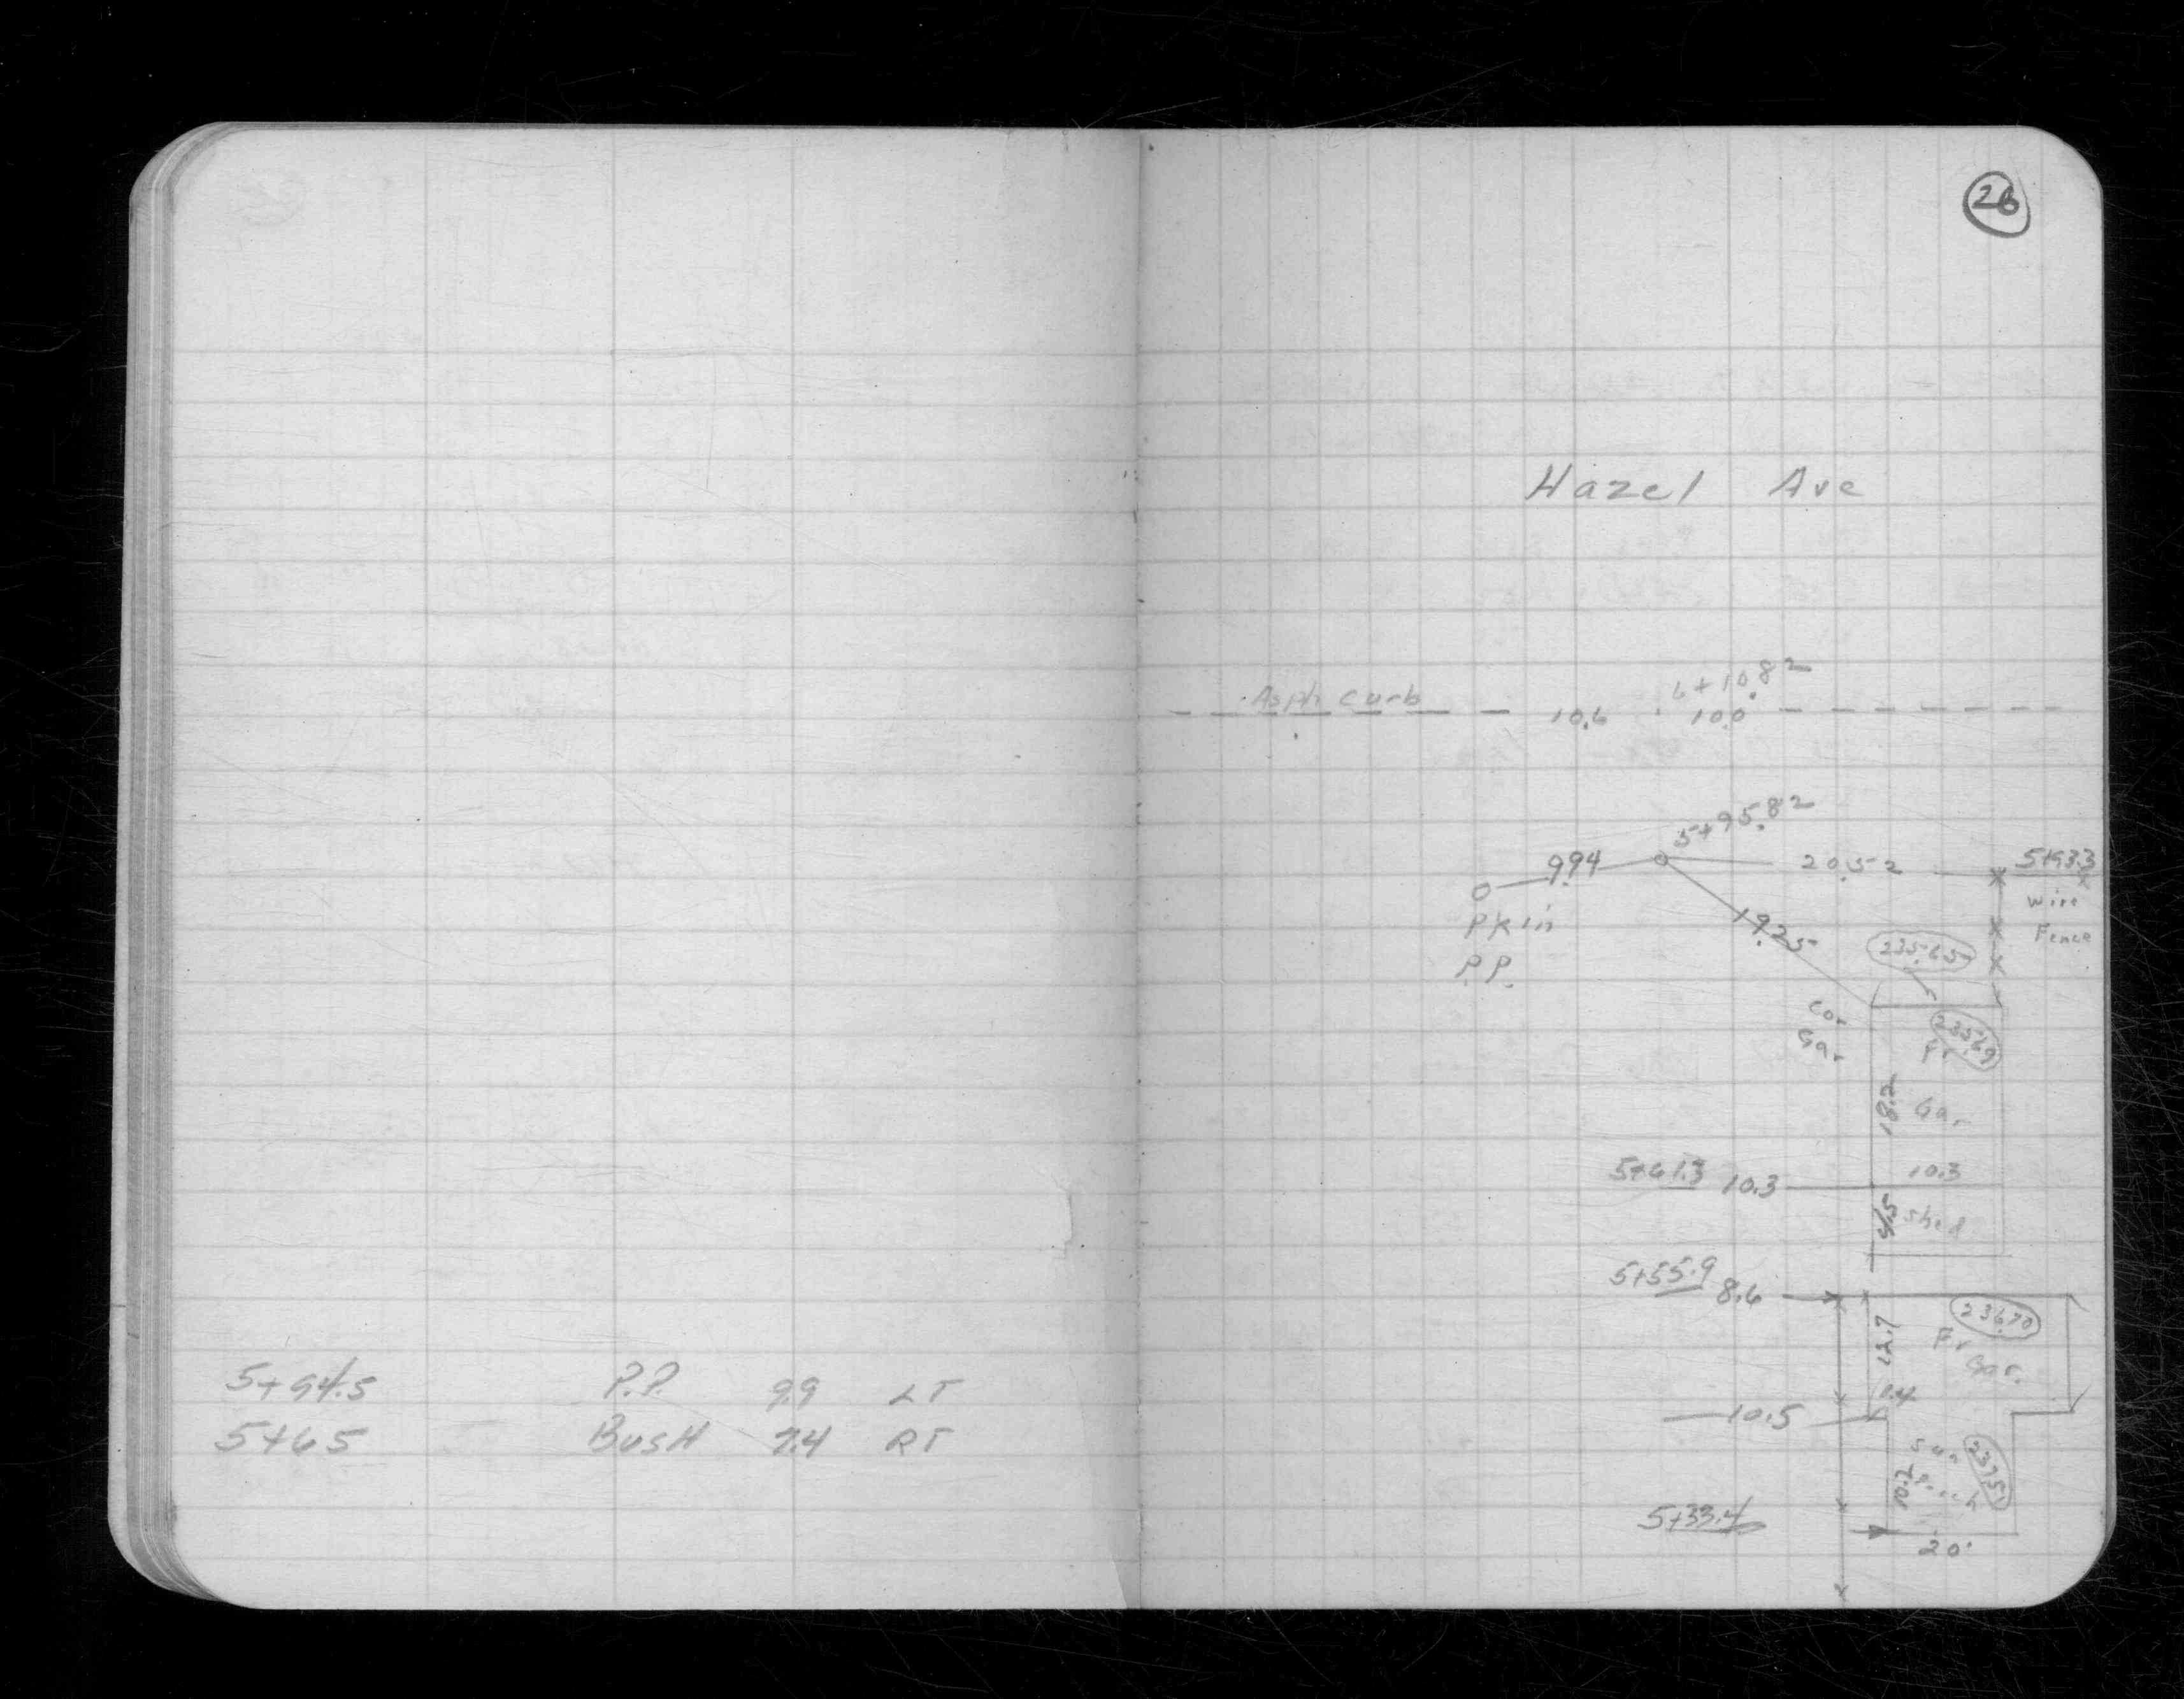 5+94.5 P.P. 9.9 LT
5+65 BusH 7.4 RT
26
Hazel Ave
6+10.82
Asph curb 10.6 10.0
5+95.82
9.94 20.52 5+93.3
PK in
P.P.
19.25
Wire
Fence
235.65
Cor
Gar
235.69
Fr.
Gar
18.2
5+61.3 10.3 10.3
shed
5+55.9 8.6
236.70
Fr
Gar.
12.7
0.4
10.5
Sun
Porch
237.51
10.2
5+33.4
20'